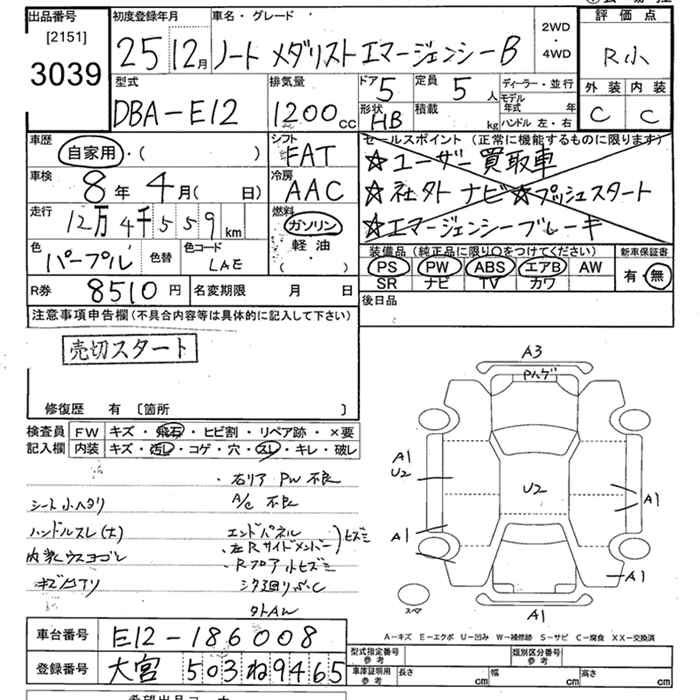 出品番号 初度登録年月 車名・グレード 評価点
[2151]
3039
25 12月 ノート メダリストエマージェンシーB
2WD・4WD
R小
型式 排気量 ドア 5 定員 5人 ディーラー・並行
DBA-E12 1200cc
形状 HB 積載 kg
モデル年式 年
ハンドル 左・右
外装 内装
C C
車歴 自家用・( )
シフト FAT
セールスポイント(正常に機能するものに限ります)
☆ユーザー買取車
☆社外ナビ☆プッシュスタート
☆エマージェンシーブレーキ
車検 8年4月( 日)
冷房 AAC
走行 12万4千559km
燃料 ガソリン・軽油・( )
色 パープル 色替 色コード LAE
装備品(純正品に限り○をつけてください) 新車保証書
PS PW ABS エアB AW 有・無
SR ナビ TV カワ
R券 8510円 名変期限 月 日
後日品
注意事項申告欄(不具合内容等は具体的に記入して下さい)
売切スタート
修復歴 有 〔箇所 〕
検査員 FW キズ・飛石・ヒビ割・リペア跡・×要
記入欄 内装 キズ・汚レ・コゲ・穴・スレ・キレ・破レ
・右リア PW 不良
シート小ヘタリ A/C 不良
ハンドルスレ(大) エンドパネル
・左Rサイドメンバー ヒズミ
内装ウスヨゴレ ・Rフロアヒズミ
A3
Pハゲ
A1
U2
U2
A1
A1
A1
A1
スペア
A-キズ E-エクボ U-凹み W-補修跡 S-サビ C-腐食 XX-交換済
車台番号 E12-186008
型式指定番号 参考 類別区分番号 参考
登録番号 大宮 503 ね 9465
車庫証明用 参考 長さ cm 幅 cm 高さ cm